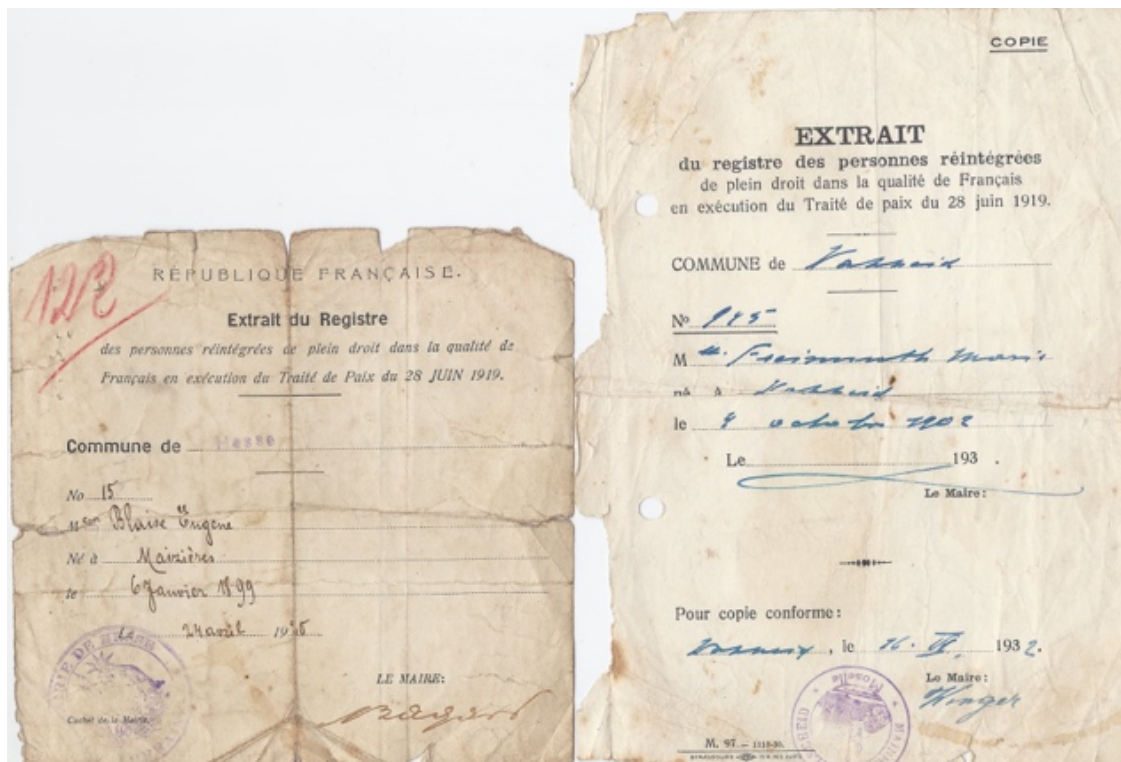 122
RÉPUBLIQUE FRANÇAISE.
Extrait du Registre
des personnes réintégrées de plein droit dans la qualité de
Français en exécution du Traité de Paix du 28 JUIN 1919.
Commune de Hesse
No 15
Blaise Eugène
Né à Maizières
le 6 Janvier 1899
Le 24 avril 19
LE MAIRE:
Cachet de la Mairie.
MAIRIE DE HESSE
COPIE
EXTRAIT
du registre des personnes réintégrées
de plein droit dans la qualité de Français
en exécution du Traité de paix du 28 juin 1919.
COMMUNE de
No 945
M Freimuth Marie
né à
le octobre 1902
Le 193 .
Le Maire:
Pour copie conforme:
, le 16. 1932.
Le Maire:
Moselle
M. 97. — 1110-30.